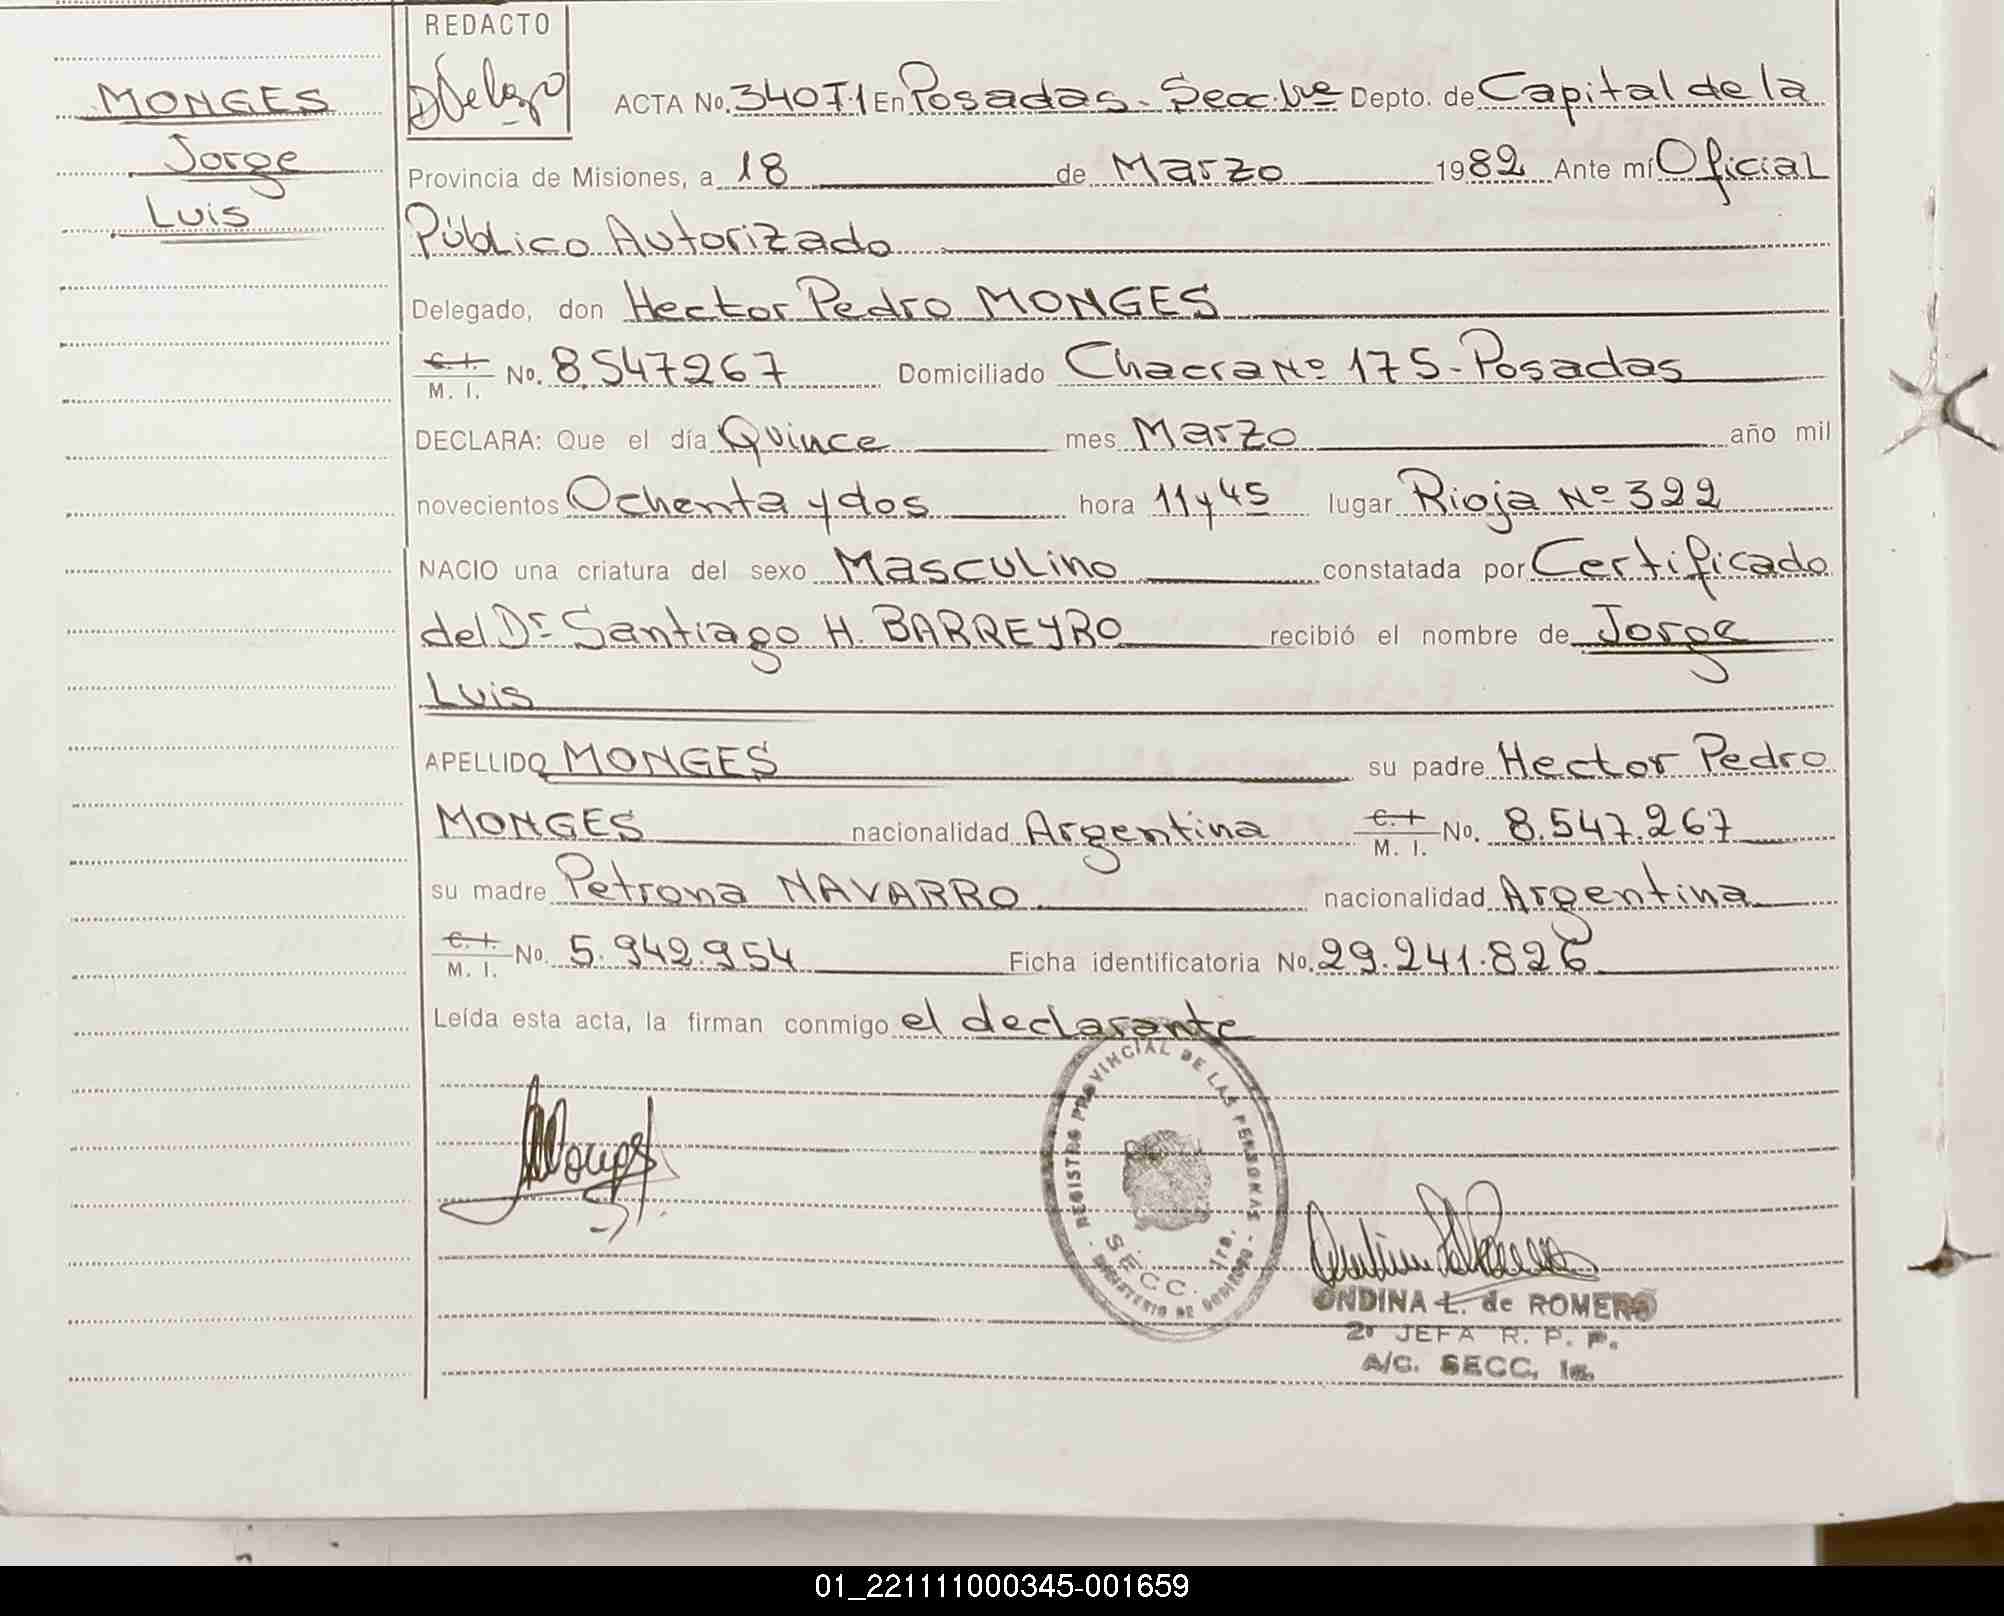 MONGES
Jorge
Luis
REDACTO
ACTA No. 3407·1 En Posadas - Secc. Depto. de Capital de la
Provincia de Misiones, a 18 de Marzo 1982 Ante mí Oficial
Público Autorizado
Delegado, don Hector Pedro MONGES
C. I.
M. I. No. 8.547267 Domiciliado Chacra Nº 175 - Posadas
DECLARA: Que el día Quince mes Marzo año mil
novecientos Ochenta y dos hora 11 y 45 lugar Rioja Nº 322
NACIO una criatura del sexo Masculino constatada por Certificado
del Dr Santiago H. BARREYRO recibió el nombre de Jorge
Luis
APELLIDO MONGES su padre Hector Pedro
MONGES nacionalidad Argentina C. I. M. I. No. 8.547.267
su madre Petrona NAVARRO nacionalidad Argentina
C. I. M. I. No. 5.942.954 Ficha identificatoria No. 29.241.826
Leída esta acta, la firman conmigo el declarante
REGISTRO PROVINCIAL DE LAS PERSONAS
SECC. 1ra.
MINISTERIO DE GOBIERNO
Monges
ONDINA L. de ROMERO
2º JEFA R. P. P.
A/C. SECC, 1a.
01_221111000345-001659